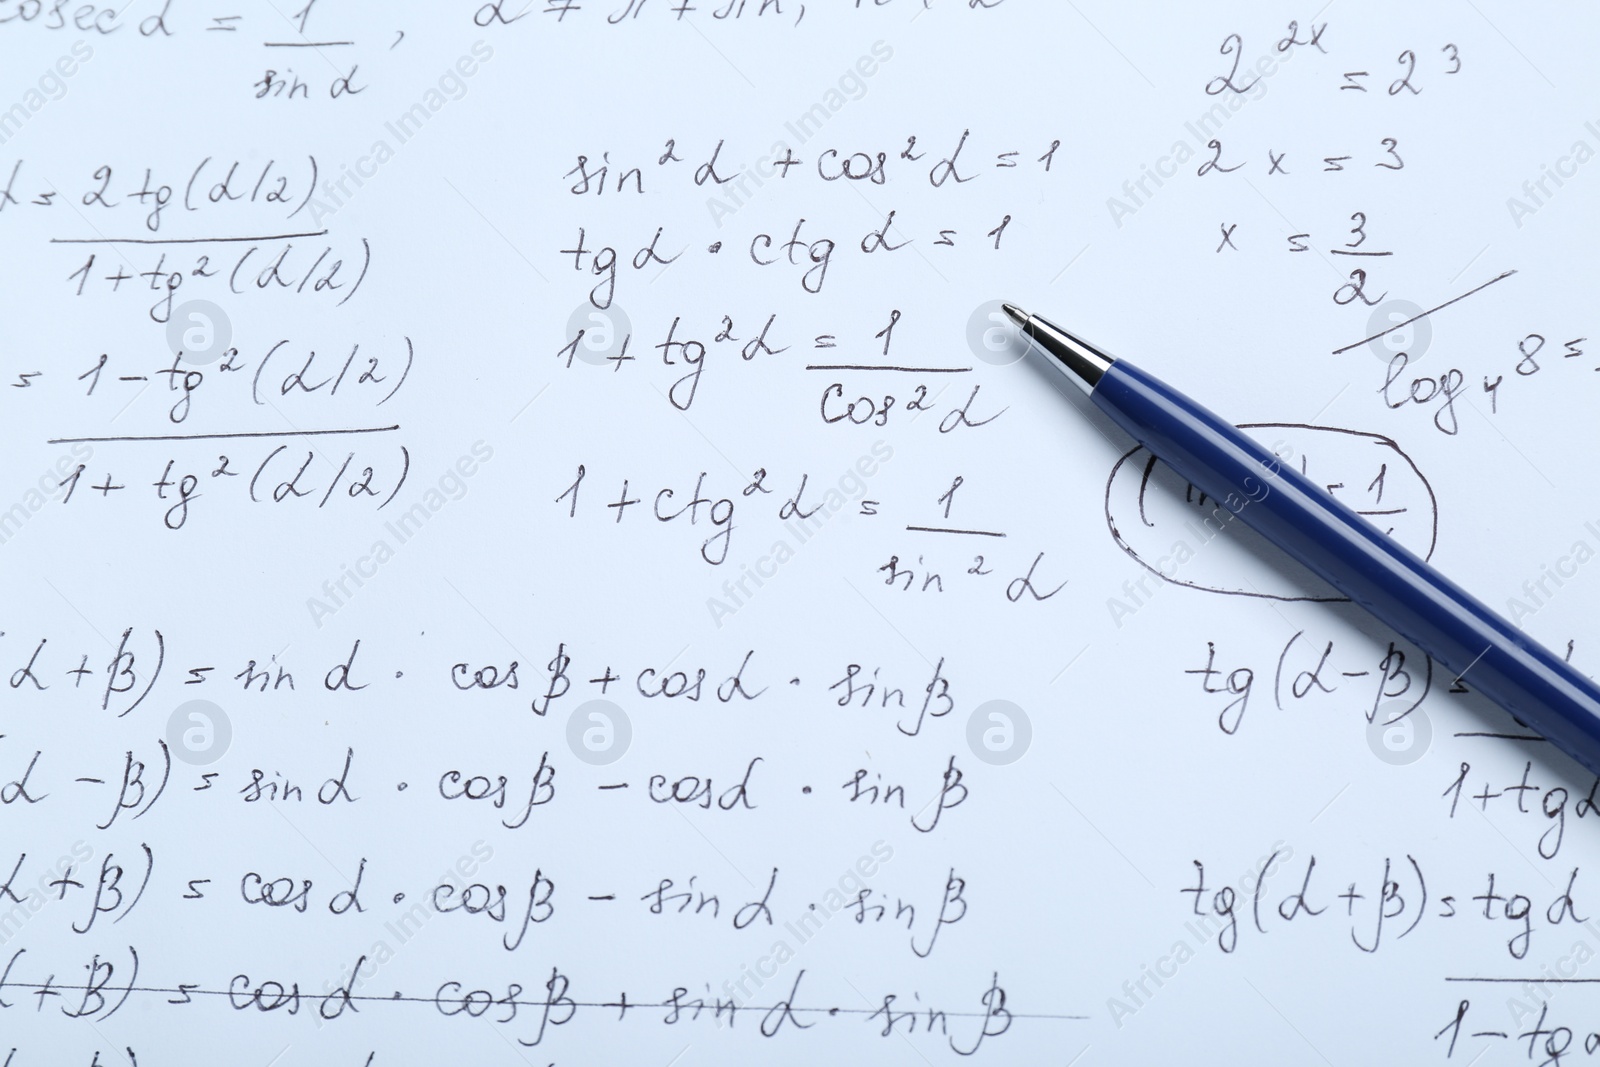 cosec α = 1 / sin α ,
2^2x = 2^3
2x = 3
x = 3/2
log₄ 8 =
α = 2 tg(α/2) / 1 + tg²(α/2)
= 1 - tg²(α/2) / 1 + tg²(α/2)
sin²α + cos²α = 1
tg α · ctg α = 1
1 + tg²α = 1 / cos²α
1 + ctg²α = 1 / sin²α
= 1
α + β) = sin α · cos β + cos α · sin β
α - β) = sin α · cos β - cos α · sin β
α + β) = cos α · cos β - sin α · sin β
+ β) = cos α · cos β + sin α · sin β
tg(α - β) =
1 + tg α
tg(α + β) = tg α
1 - tg α
Africa Images